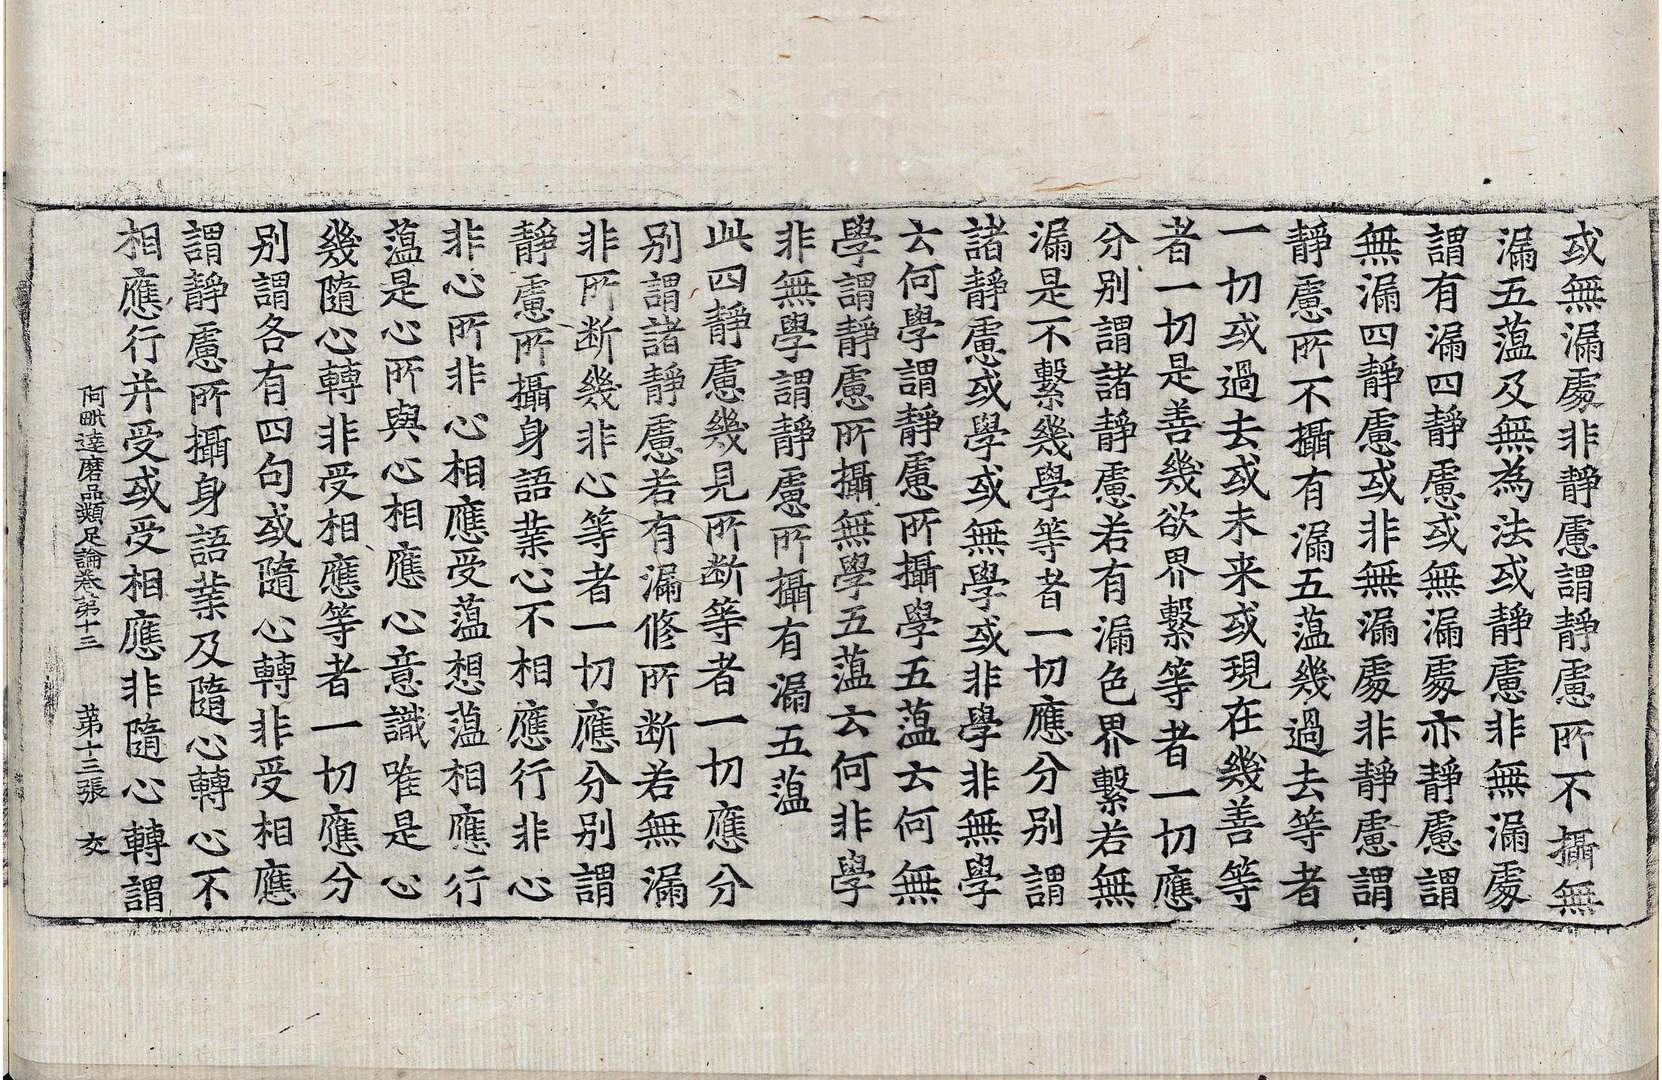 或無漏處非静慮謂静慮所不攝無
漏五蕰及無為法或静慮非無漏處
謂有漏四静慮或無漏處亦静慮謂
無漏四静慮或非無漏處非静慮謂
静慮所不攝有漏五蕰幾過去等者
一切或過去或未来或現在幾善等
者一切是善幾欲界繫等者一切應
分别謂諸静慮若有漏色界繫若無
漏是不繫幾學等者一切應分别謂
諸静慮或學或無學或非學非無學
云何學謂静慮所攝學五蕰云何無
學謂静慮所攝無學五蕰云何非學
非無學謂静慮所攝有漏五蕰
此四静慮幾見所断等者一切應分
别謂諸静慮若有漏修所断若無漏
非所断幾非心等者一切應分别謂
静慮所攝身語業心不相應行非心
非心所非心相應受蕰想蕰相應行
蕰是心所與心相應心意識唯是心
幾隨心轉非受相應等者一切應分
别謂各有四句或隨心轉非受相應
謂静慮所攝身語業及隨心轉心不
相應行并受或受相應非隨心轉謂
阿毗達磨品類足論卷第十三 第十三張 交